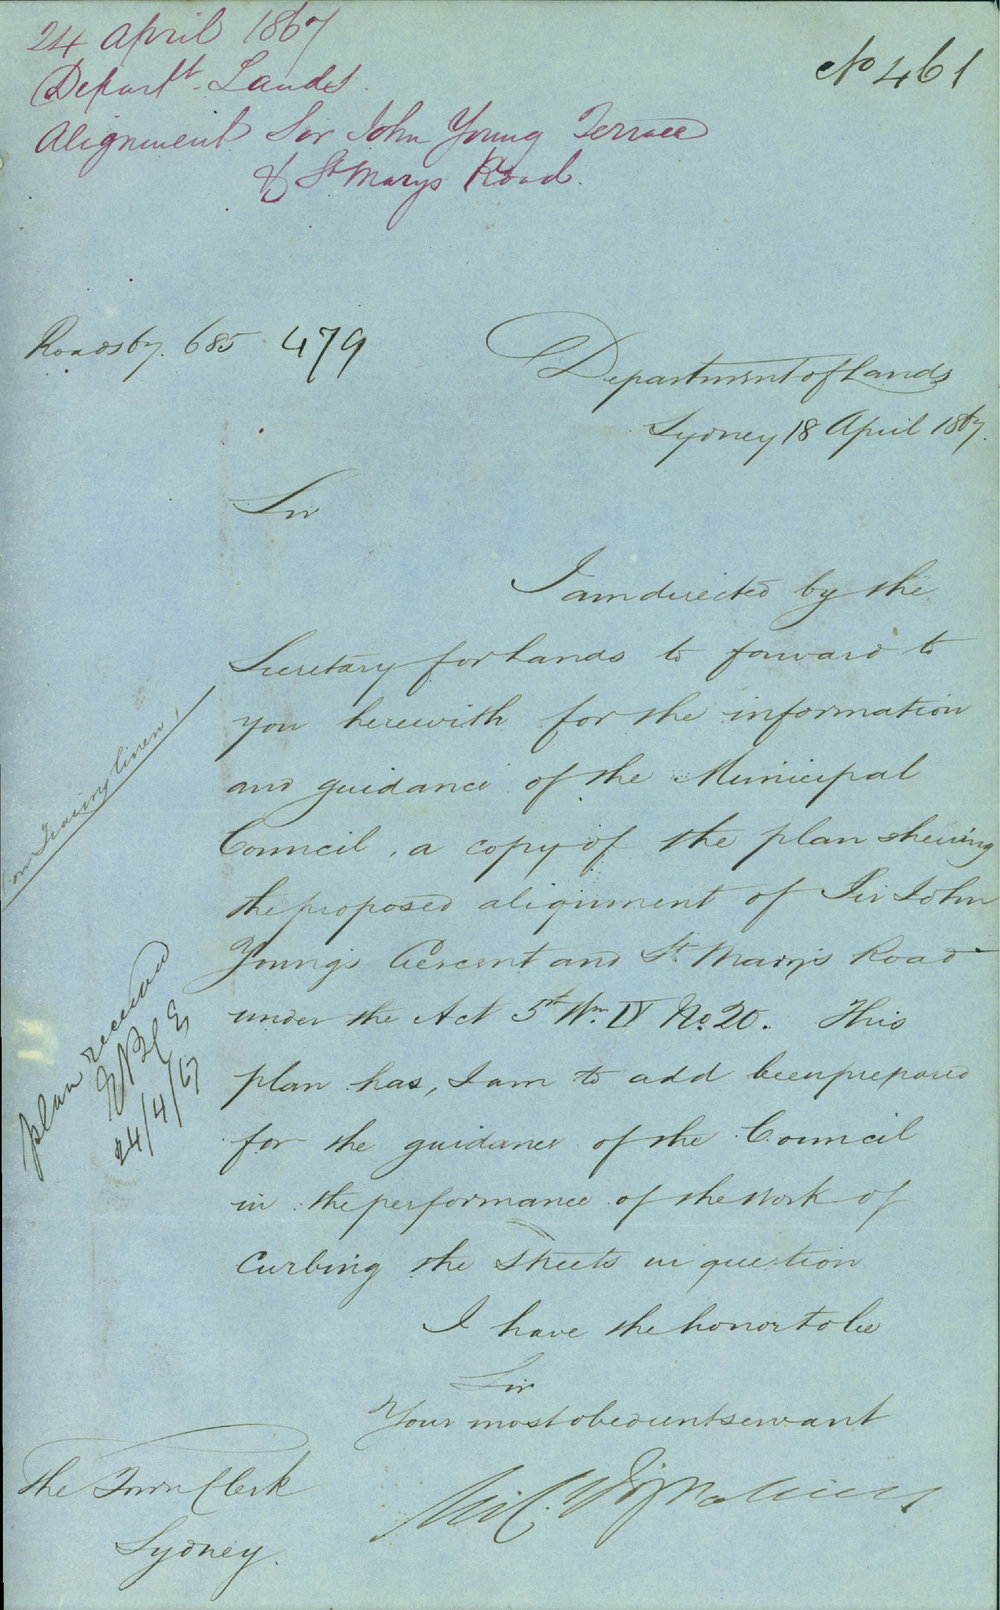 24 April 1867
Depart^t Lands
No 461
Alignment Sir John Young Terrace
& St Marys Road.
Roads 67. 685 479
Department of Lands
Sydney 18 April 1867.
Sir
I am directed by the
Secretary for Lands to forward to
you herewith for the information
and guidance of the Municipal
Council, a copy of the plan shewing
the proposed alignment of Sir John
Young's Crescent and St. Mary's Road
under the Act 5th Wm IV No. 20. This
plan has, I am to add been prepared
for the guidance of the Council
in the performance of the work of
Curbing the Streets in question
I have the honor to be
Sir
Your most obedient servant
The Town Clerk
Sydney.
on Tracing linen
plan received
24/4/67